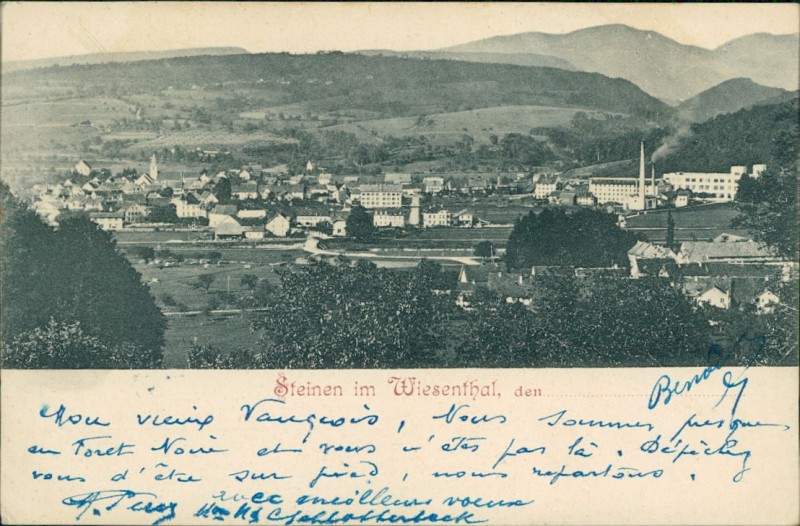 Steinen im Wiesenthal, den
Mon vieux Vaugeois, Nous sommes presque
en Foret Noire et vous n'êtes pas là. Dépêchez
vous d'être sur pied, nous repartons.
avec meilleurs voeux